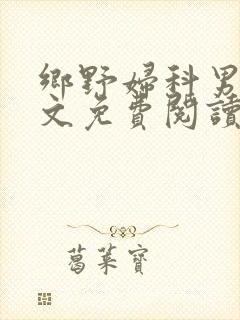 鄉野婦科男
文免費閱讀
葛萊寶